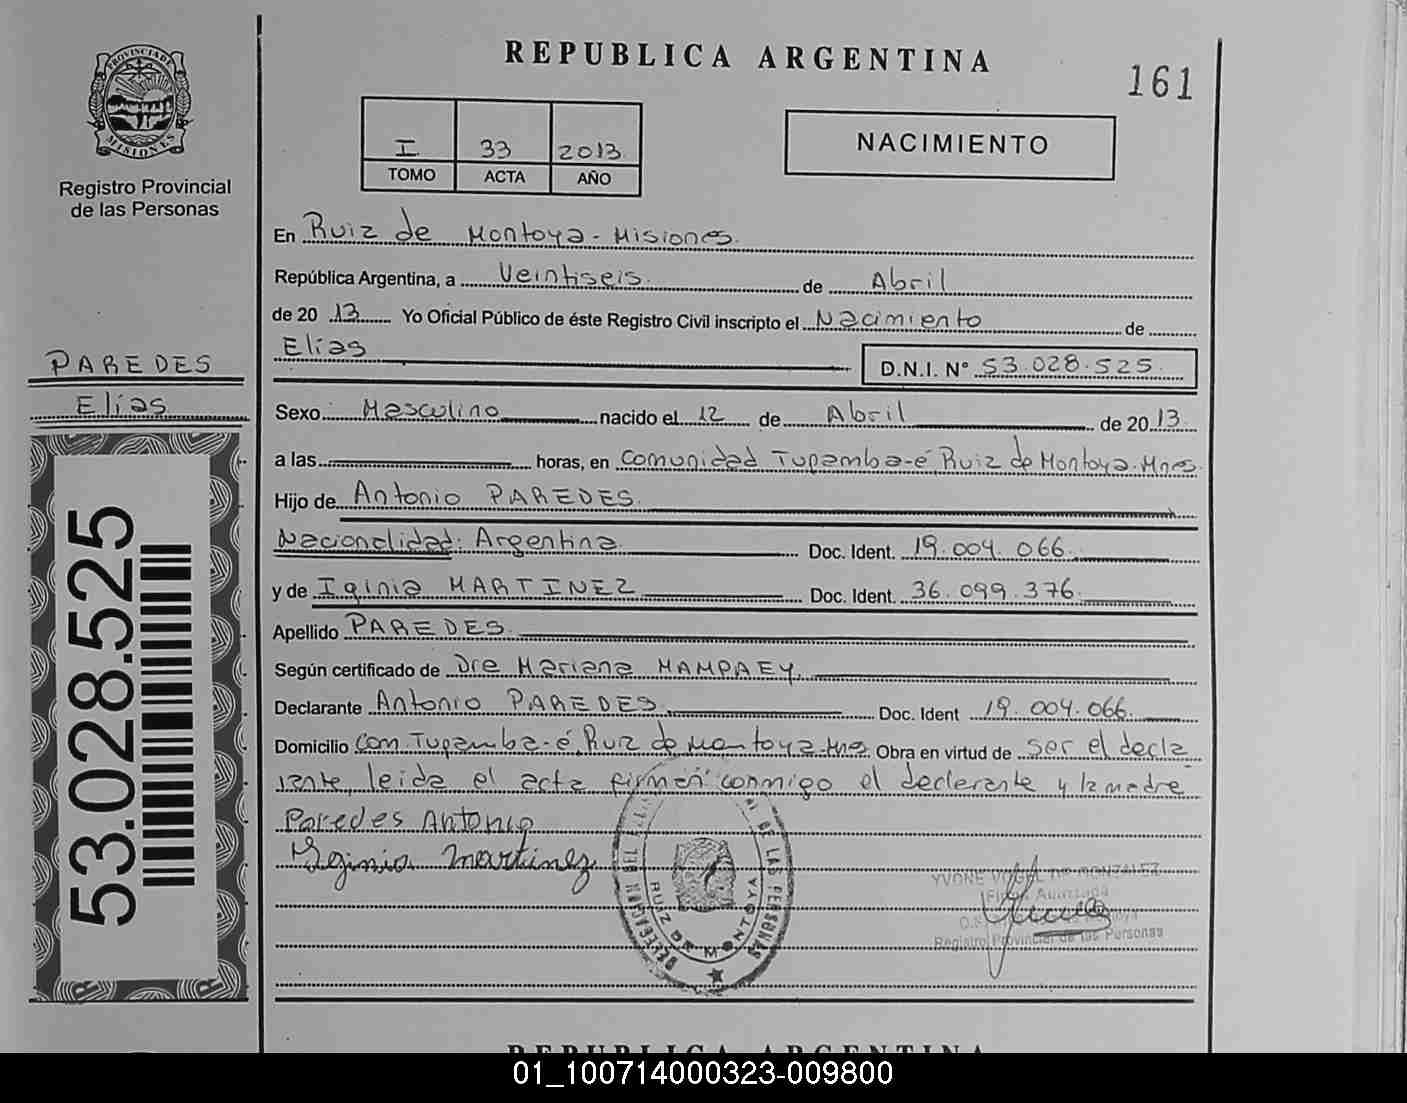 REPUBLICA ARGENTINA
161
PROVINCIA DE MISIONES
Registro Provincial
de las Personas
I 33 2013
TOMO ACTA AÑO
NACIMIENTO
En Ruiz de Montoya - Misiones.
República Argentina, a Veintiseis de Abril
de 20 13 Yo Oficial Público de éste Registro Civil inscripto el Nacimiento de
Elías D.N.I. Nº 53.028.525
PAREDES
Elías
Sexo Masculino nacido el 12 de Abril de 20 13
a las horas, en Comunidad Tupamba-é, Ruiz de Montoya-Mnes.
Hijo de Antonio PAREDES.
Nacionalidad: Argentina Doc. Ident. 19.004.066
y de Iginia MARTINEZ Doc. Ident. 36.099.376
Apellido PAREDES.
Según certificado de Dra Mariana MAMPAEY.
Declarante Antonio PAREDES Doc. Ident 19.004.066.
Domicilio Com. Tupamba-é, Ruiz de Montoya-Mnes Obra en virtud de ser el decla
rante, leida el acta firman conmigo el declarante y la madre
Paredes Antonio
Iginia Martinez
DELEGACION DEL DE LAS PERSONAS
RUIZ DE MONTOYA
YVONE VOGEL DE GONZALEZ
Firma Autorizada
Registro Provincial de las Personas
53.028.525
REPUBLICA ARGENTINA
01_100714000323-009800